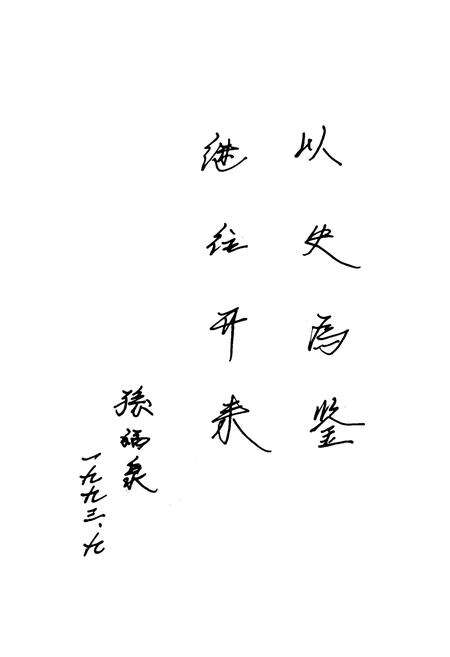 以史為鉴
继往开来
張福泉
一九九三、九